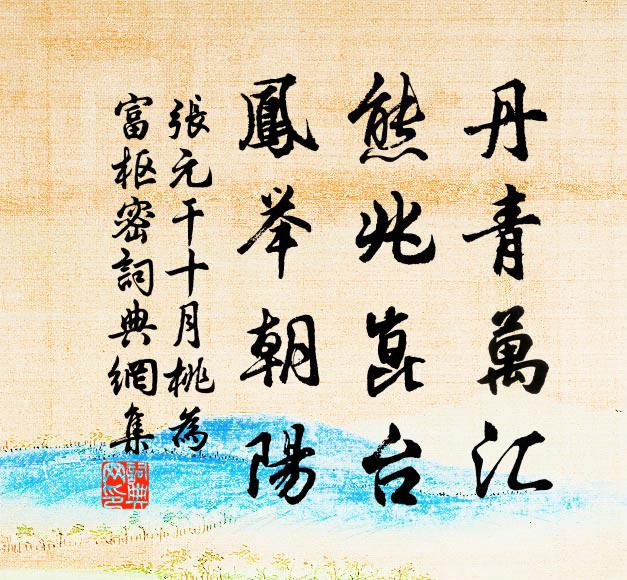 丹青萬汇
熊兆崑台
鳳举朝陽
張元干十月桃為
富枢密詞典網集